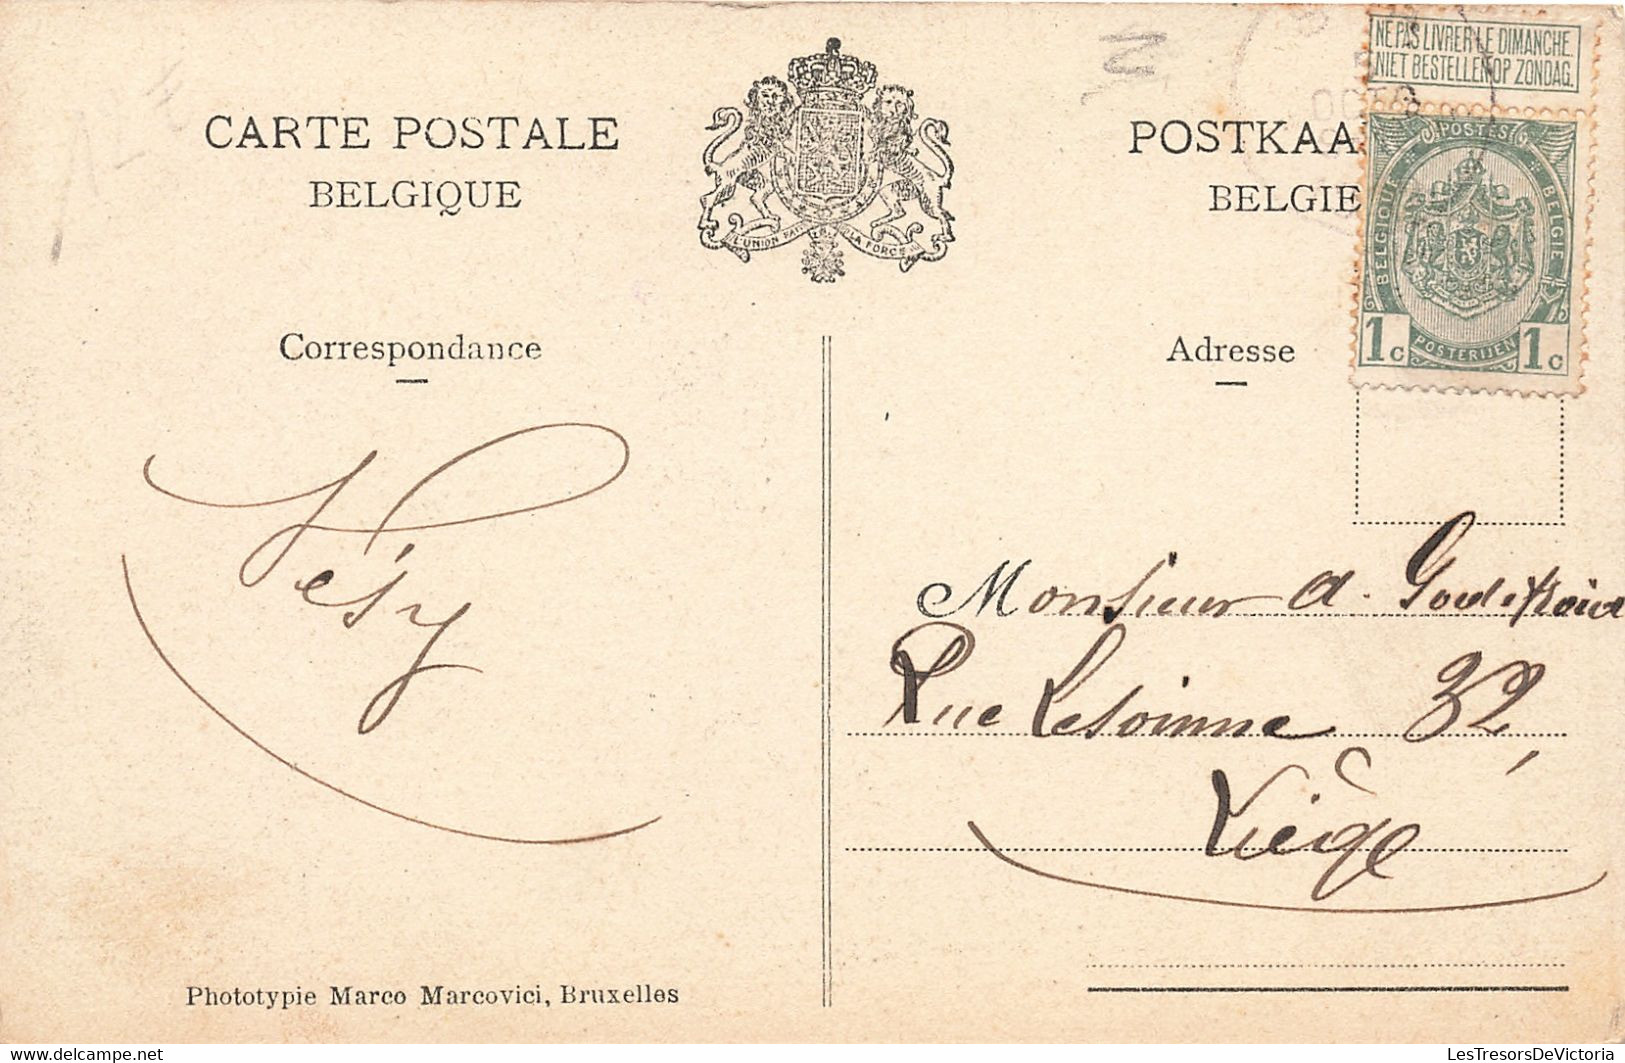 CARTE POSTALE
BELGIQUE
L'UNION FAIT LA FORCE
POSTKAA
BELGIE
NE PAS LIVRER LE DIMANCHE
NIET BESTELLEN OP ZONDAG.
OCTO
POSTES
BELGIQUE
BELGIE
1c 1c
POSTERIJEN
Correspondance
Adresse
Monsieur A. Godefroid
Rue Lesoinne 32,
Liège
Phototypie Marco Marcovici, Bruxelles
LesTresorsDeVictoria
www.delcampe.net